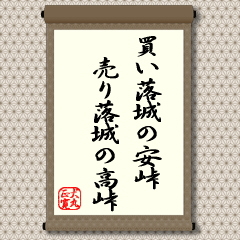 買い落城の安峠
売り落城の高峠
大丸正富